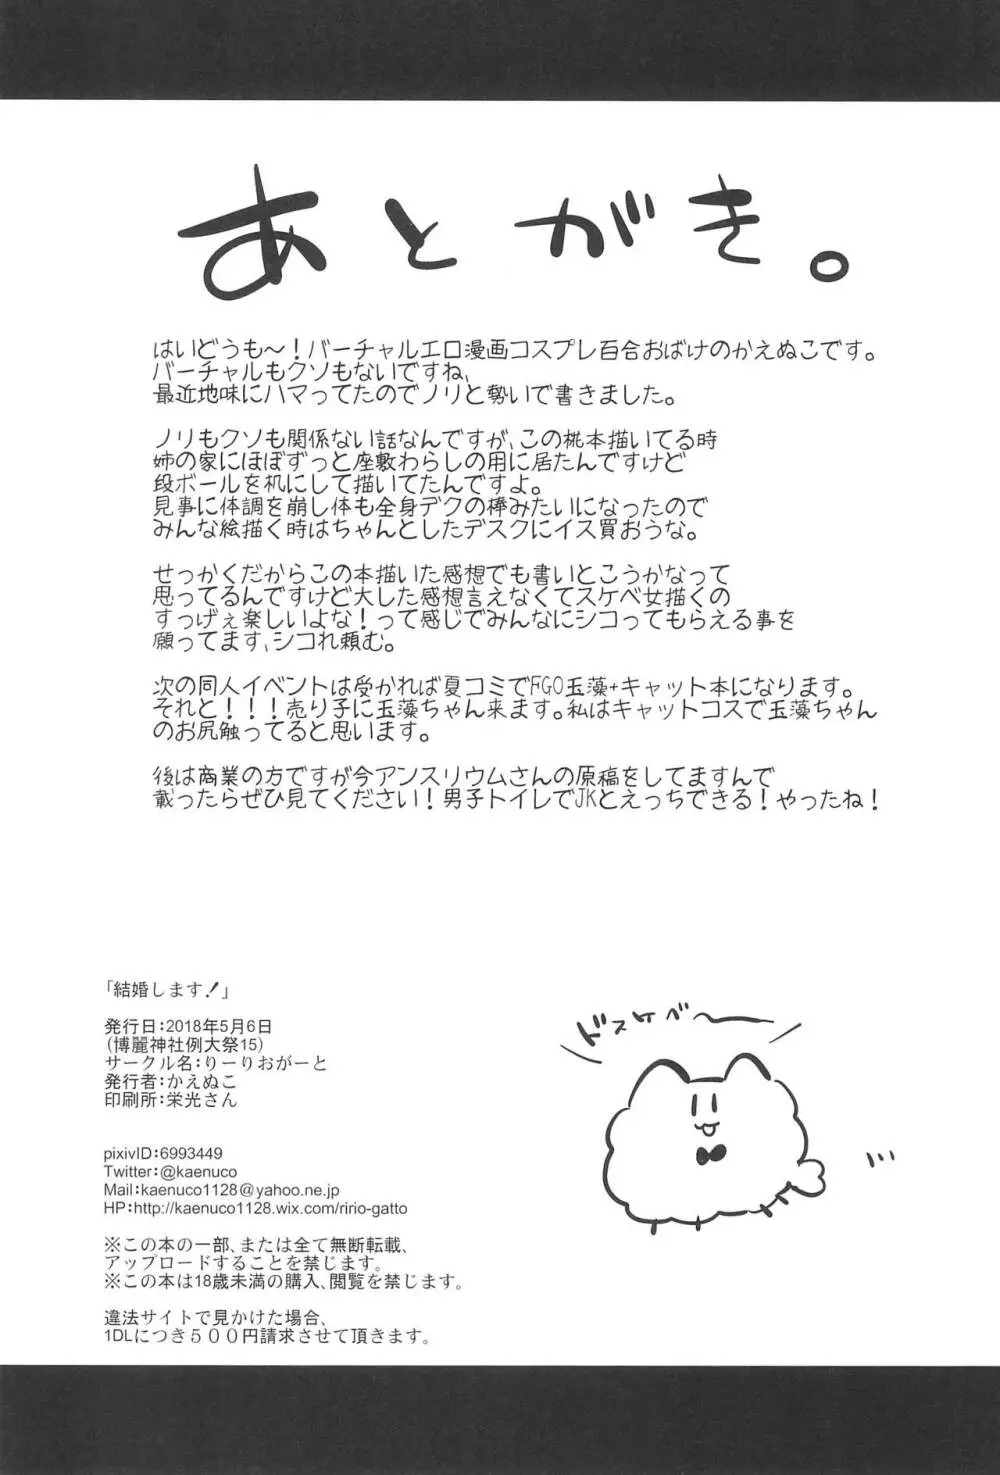 あとがき。
はいどうも～！バーチャルエロ漫画コスプレ百合おばけのかえぬこです。
バーチャルもクソもないですね、
最近地味にハマってたのでノリと勢いで書きました。
ノリもクソも関係ない話なんですが、この桃本描いてる時
姉の家にほぼずっと座敷わらしの用に居たんですけど
段ボールを机にして描いてたんですよ。
見事に体調を崩し体も全身デクの棒みたいになったので
みんな絵描く時はちゃんとしたデスクにイス買おうな。
せっかくだからこの本描いた感想でも書いとこうかなって
思ってるんですけど大した感想言えなくてスケベ女描くの
すっげぇ楽しいよな！って感じでみんなにシコってもらえる事を
願ってます、シコれ頼む。
次の同人イベントは受かれば夏コミでFGO玉藻+キャット本になります。
それと！！！売り子に玉藻ちゃん来ます。私はキャットコスで玉藻ちゃん
のお尻触ってると思います。
後は商業の方ですが今アンスリウムさんの原稿をしてますんで
載ったらぜひ見てください！男子トイレでJKとえっちできる！やったね！
「結婚します！」
発行日：2018年5月6日
(博麗神社例大祭15)
サークル名：りーりおがーと
発行者：かえぬこ
印刷所：栄光さん
ドスケベ～
pixivID：6993449
Twitter：@kaenuco
Mail：kaenuco1128@yahoo.ne.jp
HP：http://kaenuco1128.wix.com/ririo-gatto
※この本の一部、または全て無断転載、
アップロードすることを禁じます。
※この本は18歳未満の購入、閲覧を禁じます。
違法サイトで見かけた場合、
1DLにつき５００円請求させて頂きます。